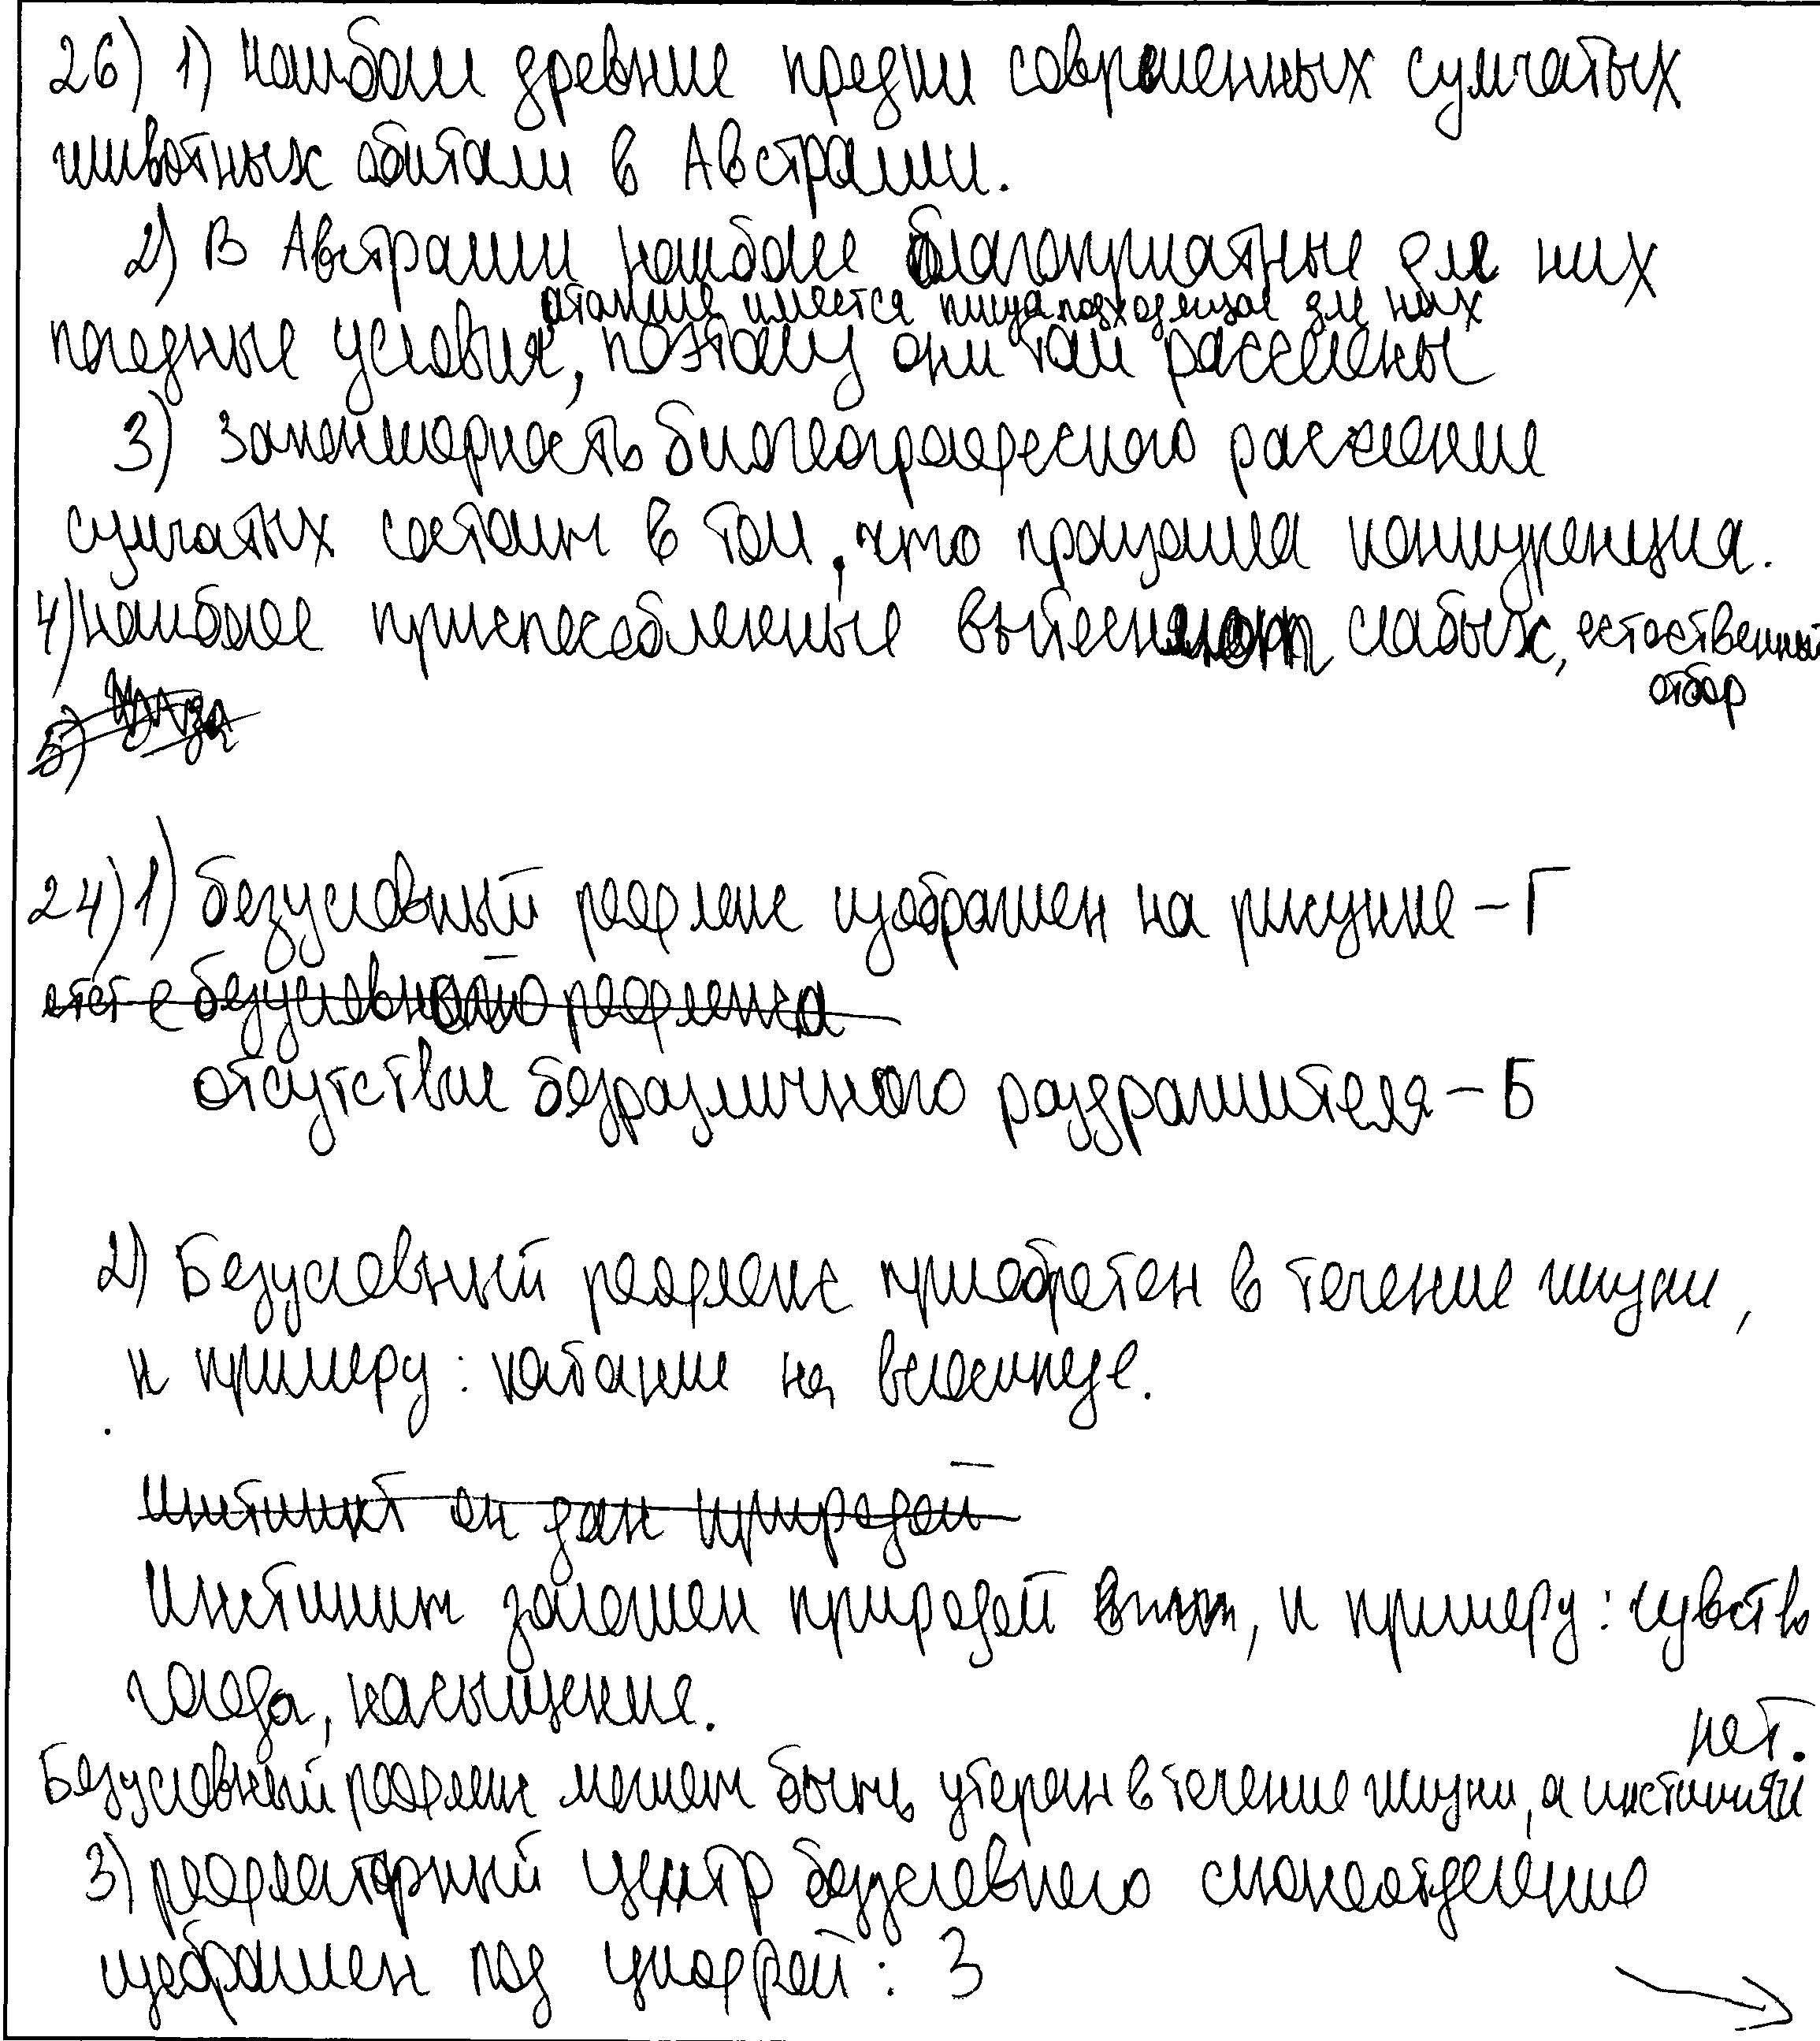 26) 1) Наиболе древние предки современных сумчатых
животных обитали в Австралии.
2) В Австралии наиболее благоприятные для них
а также имеется пища подходящая для них
погодные условия, поэтому они там расселены
3) Закономерность биогеографического расселения
сумчатых состоит в том, что произошла конкуренция.
4) Наиболее приспособленные вытесняют слабых, естественный
отбор
5)
24) 1) безусловный рефлекс изображен на рисунке - Г
отст е безусловного рефлекса
отсутствие безразличного раздражителя - Б
2) Безусловный рефлекс приобретен в течение жизни,
к примеру: катание на велосипеде.
Инстинкт он дан природой
Инстинкт заложен природой, к примеру: чувство
голода, насыщения.
нет.
Безусловный рефлекс может быть утерян в течение жизни, а инстинкт
3) рефлекторный центр безусловного слюноотделения
изображен под цифрой: 3